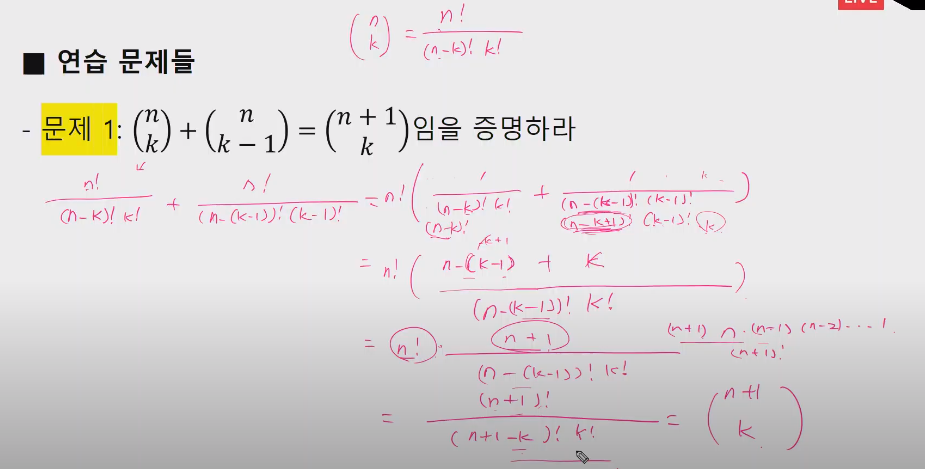 LIVE
(n k) = n! / (n-k)! k!
■ 연습 문제들
- 문제 1: (n k) + (n k − 1) = (n + 1 k)임을 증명하라
n! / (n-k)! k! + n! / (n-(k-1))! (k-1)! = n! ( 1 / (n-k)! k! + 1 / (n-(k-1))! (k-1)! )
(n-k)! (n-k+1) (k-1)! k
-k+1
= n! ( n-(k-1) + k / (n-(k-1))! k! )
= n! · n+1 / (n-(k-1))! k!
(n+1) n·(n-1) (n-2)····1
(n+1)!
= (n+1)! / (n+1-k)! k! = (n+1 k)